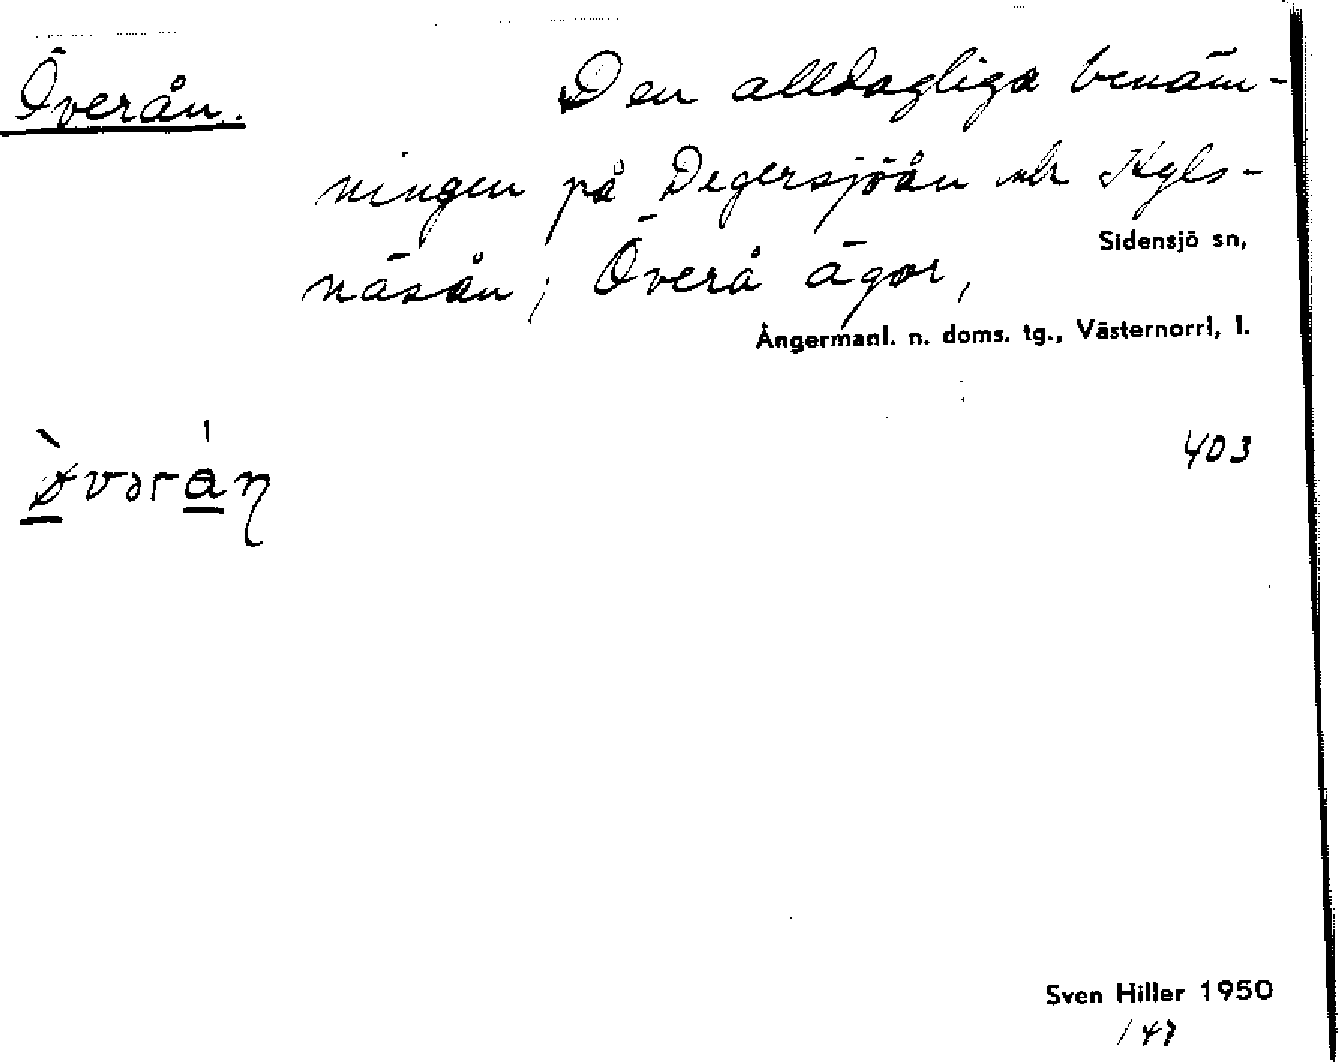 Överån. Den alldagliga benäm-
ningen på Degersjöån och Kyls-
Sidensjö sn,
näsån i Överå ägor,
Ångermanl. n. doms. tg., Västernorrl. l.
403
Sven Hiller 1950